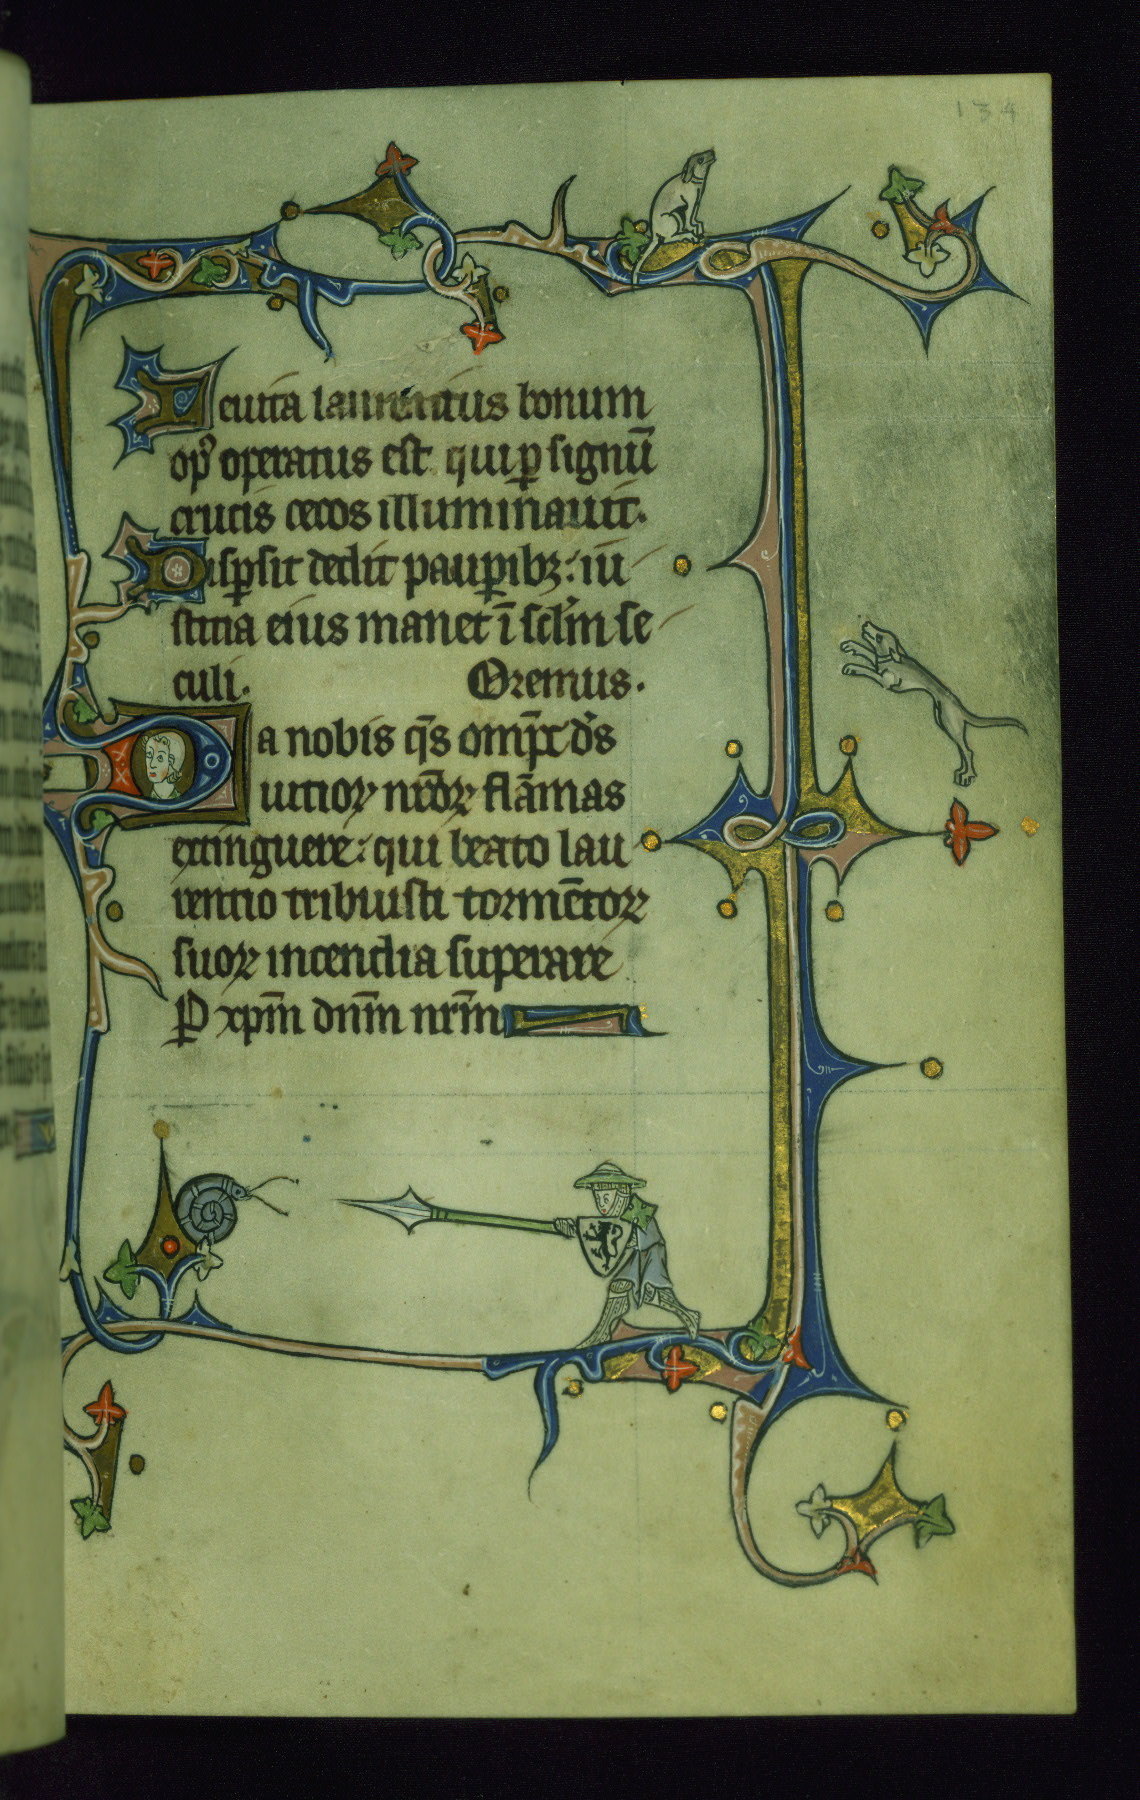 134
Leuita laurentius bonum
opꝰ operatus est qui ꝑ signū
crucis cecos illuminauit.
Disꝑsit dedit pauꝑibꝫ: iu
sticia eius manet ī scl̓m se
culi. Oremus.
Da nobis q̄s omp̄s ds̓
uitioꝝ nr̄oꝝ flāmas
extinguere: qui beato lau
rentio tribuisti tormētoꝝ
suoꝝ incendia superare
P xp̄m dn̄m nr̄m